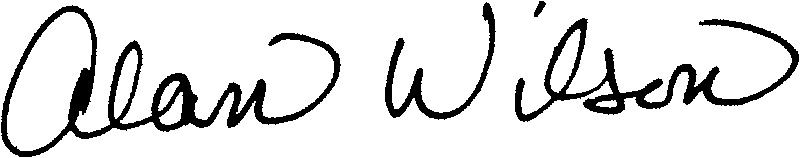 Alan Wilson